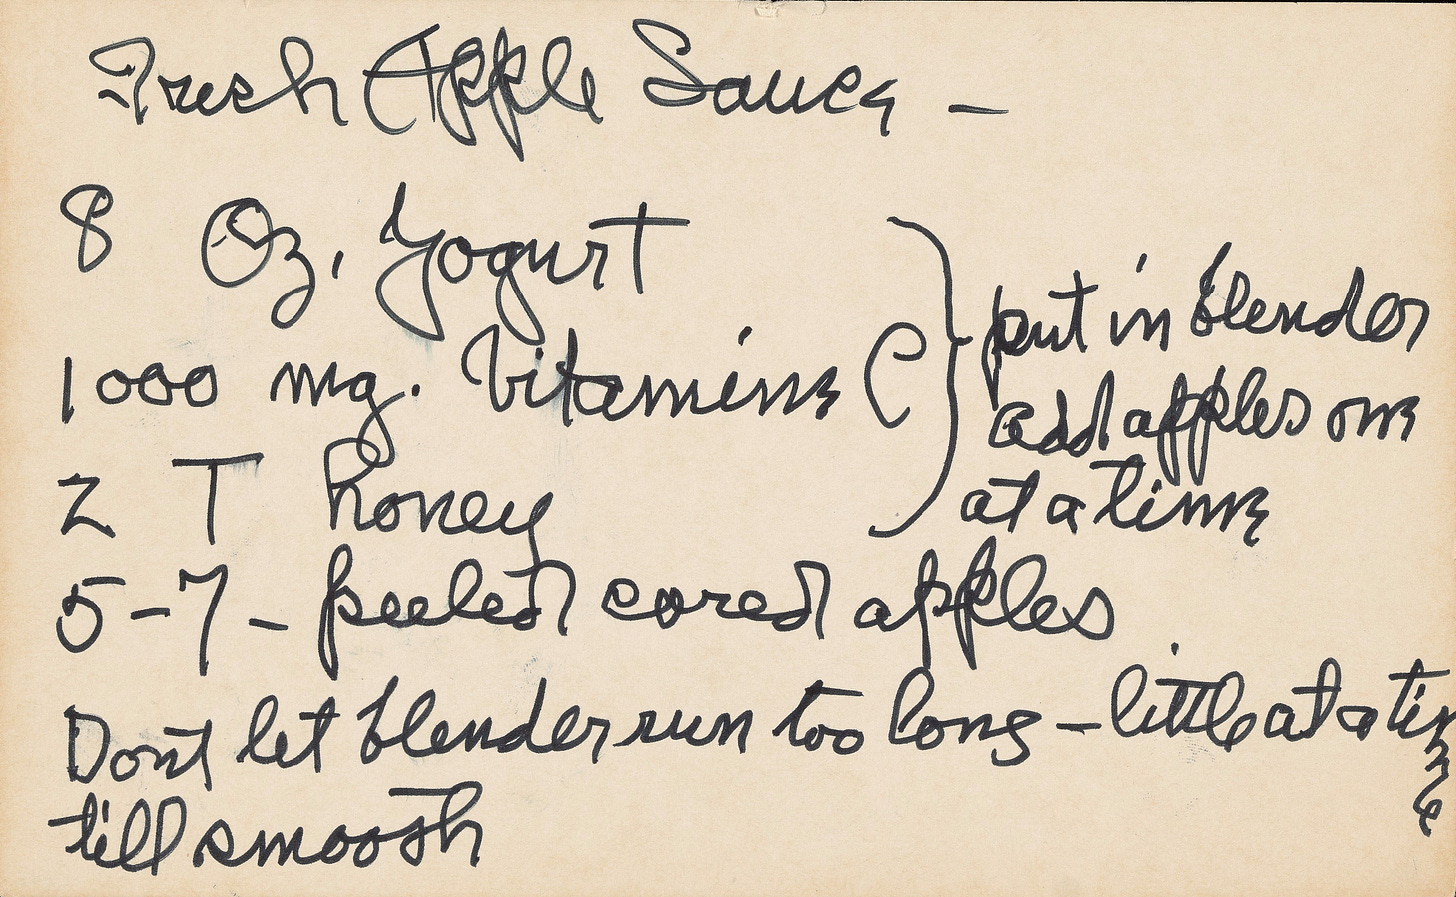 Fresh Apple Sauce –
8 Oz. Yogurt
1000 mg. Vitamine C
2 T honey
put in blender
add apples one
at a time
5-7 – peeled cored apples
Don't let blender run too long – little at a time
till smooth